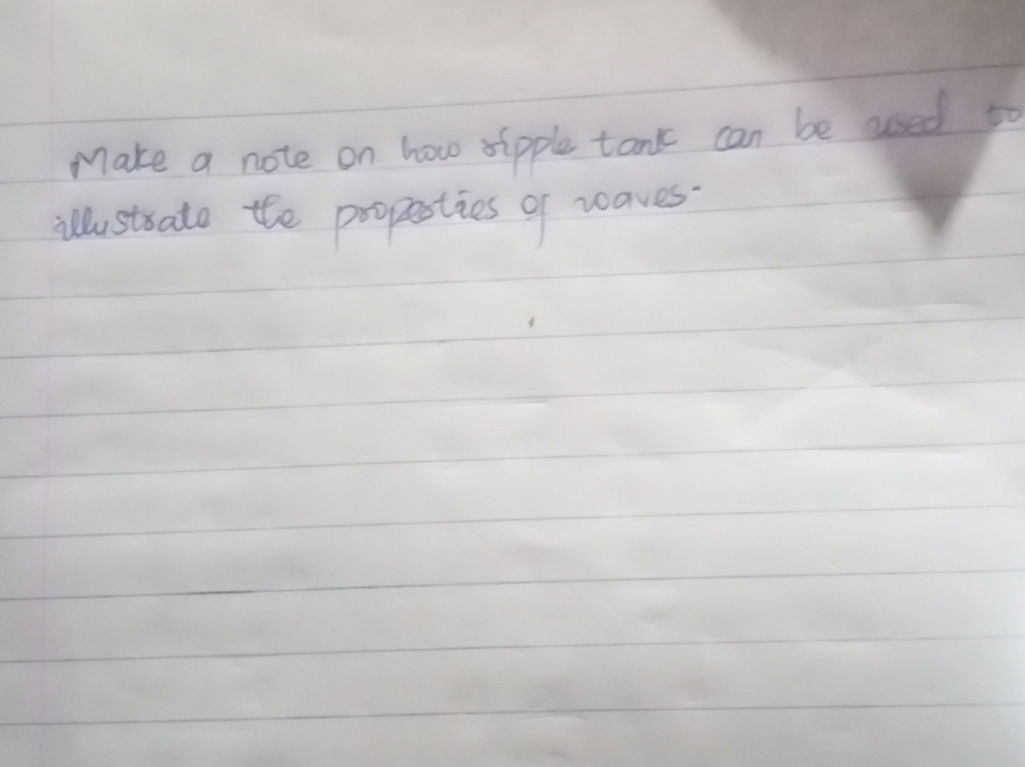 Make a note on how ripple tank can be used to
illustrate the properties of waves.